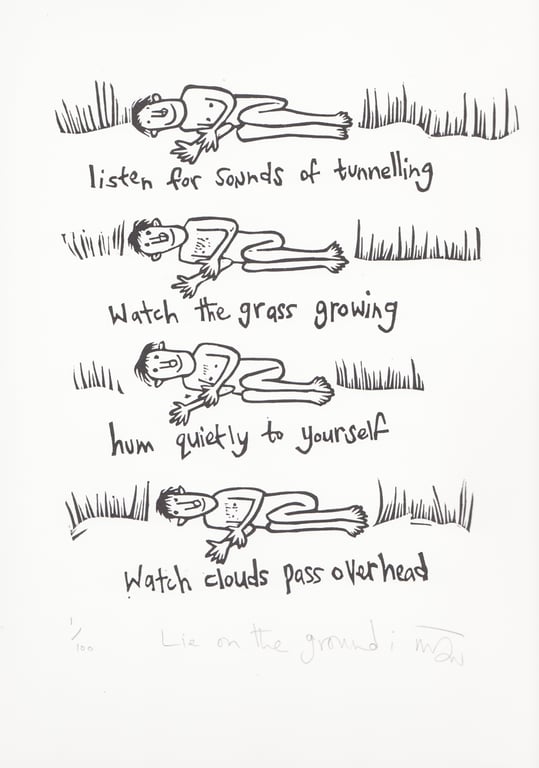 listen for sounds of tunnelling
Watch the grass growing
hum quietly to yourself
Watch clouds pass overhead
1/100 Lie on the ground i